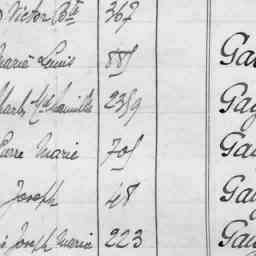 Victor Bte 367 
Marie Louis 885 Ga
Charles Camille 2359 Gay
Pierre Marie 705 Gay
Joseph 48 Gay
Joseph Marie 223 Gay